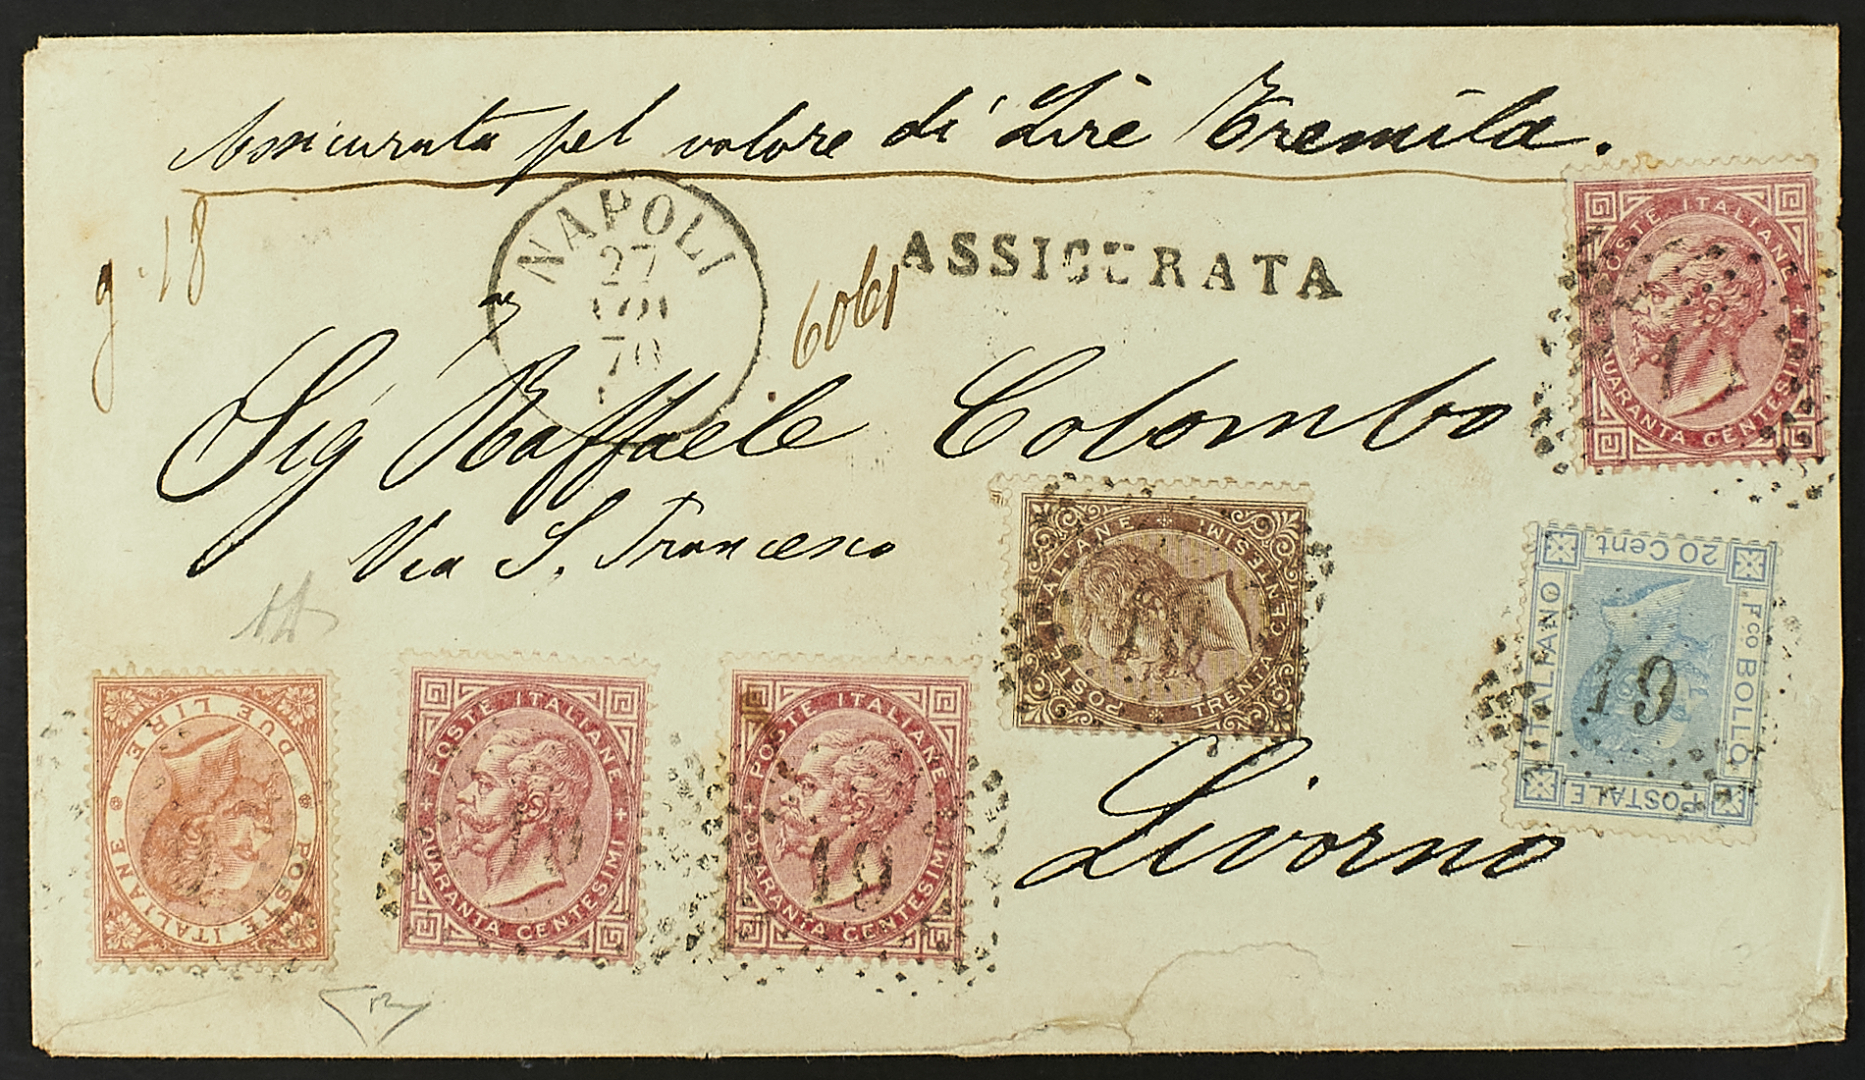 Assicurata pel valore di Lire Tremila.
g. 18
NAPOLI
27
70
6061
ASSICURATA
Sig Raffaele Colombo
Via S. Francesco
Livorno
POSTE ITALIANE
QUARANTA CENTESIMI
POSTE ITALIANE
TRENTA CENTESIMI
19
20 Cent
Fco BOLLO
POSTALE
ITALIANO
19
POSTE ITALIANE
DUE LIRE
POSTE ITALIANE
QUARANTA CENTESIMI
19
POSTE ITALIANE
QUARANTA CENTESIMI
19